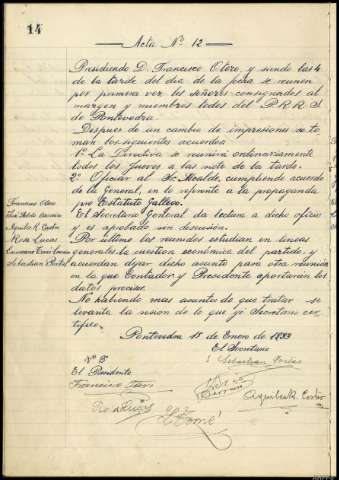 14
Acta Nº 12
Presidiendo D. Francisco Otero, y siendo las 4
de la tarde del dia de la fecha se reunen
por primera vez los señores consignados al
margen y miembros todos del P.R.R.S.
de Pontevedra.
Despues de un cambio de impresiones se to-
man los siguientes acuerdos:
1º La Directiva se reunirá ordinariamente
todos los jueves a las siete de la tarde.
2º Oficiar al Sr. Alcalde, cumpliendo acuerdo
de la General, en lo referente a la propaganda
pro Estatuto Gallego.
El Secretario General da lectura a dicho oficio
y es aprobado sin discusión.
Por ultimo los reunidos estudian en lineas
generales la cuestion económica del partido, y
acuerdan dejar dicho asunto para otra reunion
en la que Contador y Presidente aportarán los
datos precisos.
No habiendo mas asuntos de que tratar se
levanta la sesion de lo que yo Secretario cer-
tifico.
Francisco Otero
Aquilo R. Castro
Rosa Lucas
Sebastian
Pontevedra 15 de Enero de 1933
El Secretario
Sebastian
Vº Bº
El Presidente
Francisco Otero
Rosa Lucas
E. Tomé